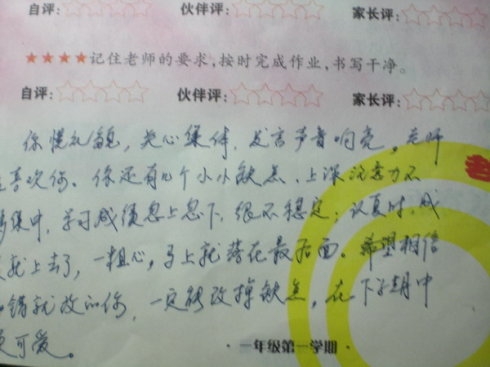 自评: 伙伴评: 家长评:
★★★★记住老师的要求,按时完成作业,书写干净。
自评: 伙伴评: 家长评:
你懂礼貌,关心集体,发言声音响亮。老师
喜欢你。你还有几个小小缺点、上课注意力不
够集中,学习成绩忽上忽下,很不稳定;认真时,成
就上去了,一粗心,马上就落在最后面。希望相信
错就改的你,一定能改掉缺点,在下学期中
更可爱。
·一年级第一学期·